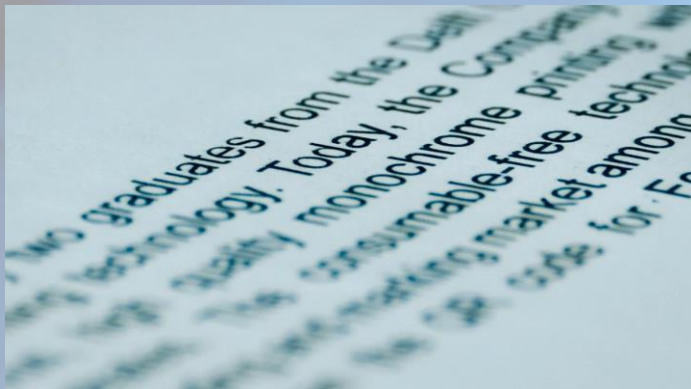 Two graduates from the Delft
technology. Today, the Company
high quality monochrome printing
The consumable-free technolo
and marking market among
the QR code for. Fo